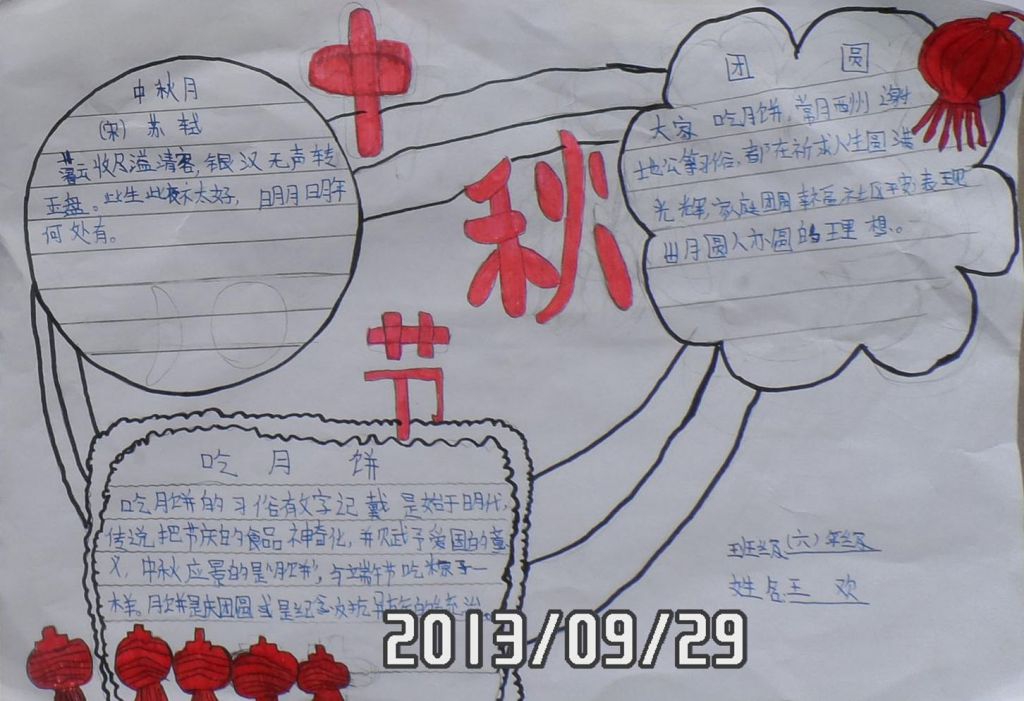 中秋节
中秋月
(宋) 苏轼
暮云收尽溢清寒,银汉无声转
玉盘。此生此夜不太好,明月明年
何处有。
团圆
大家 吃月饼,赏月 谢
土地公等习俗,都在祈求人生圆满
光辉,家庭团圆 社区平安表现
出月圆人亦圆的理想。
吃月饼
吃月饼的习俗有文字记戴是始于明代,
传说把节庆的食品神奇化,并赋予爱国的
义,中秋应景的是“月饼”,与端午节吃粽子一
样。月饼是庆团圆或是纪念
班级(六)年级
姓名王欢
2013/09/29